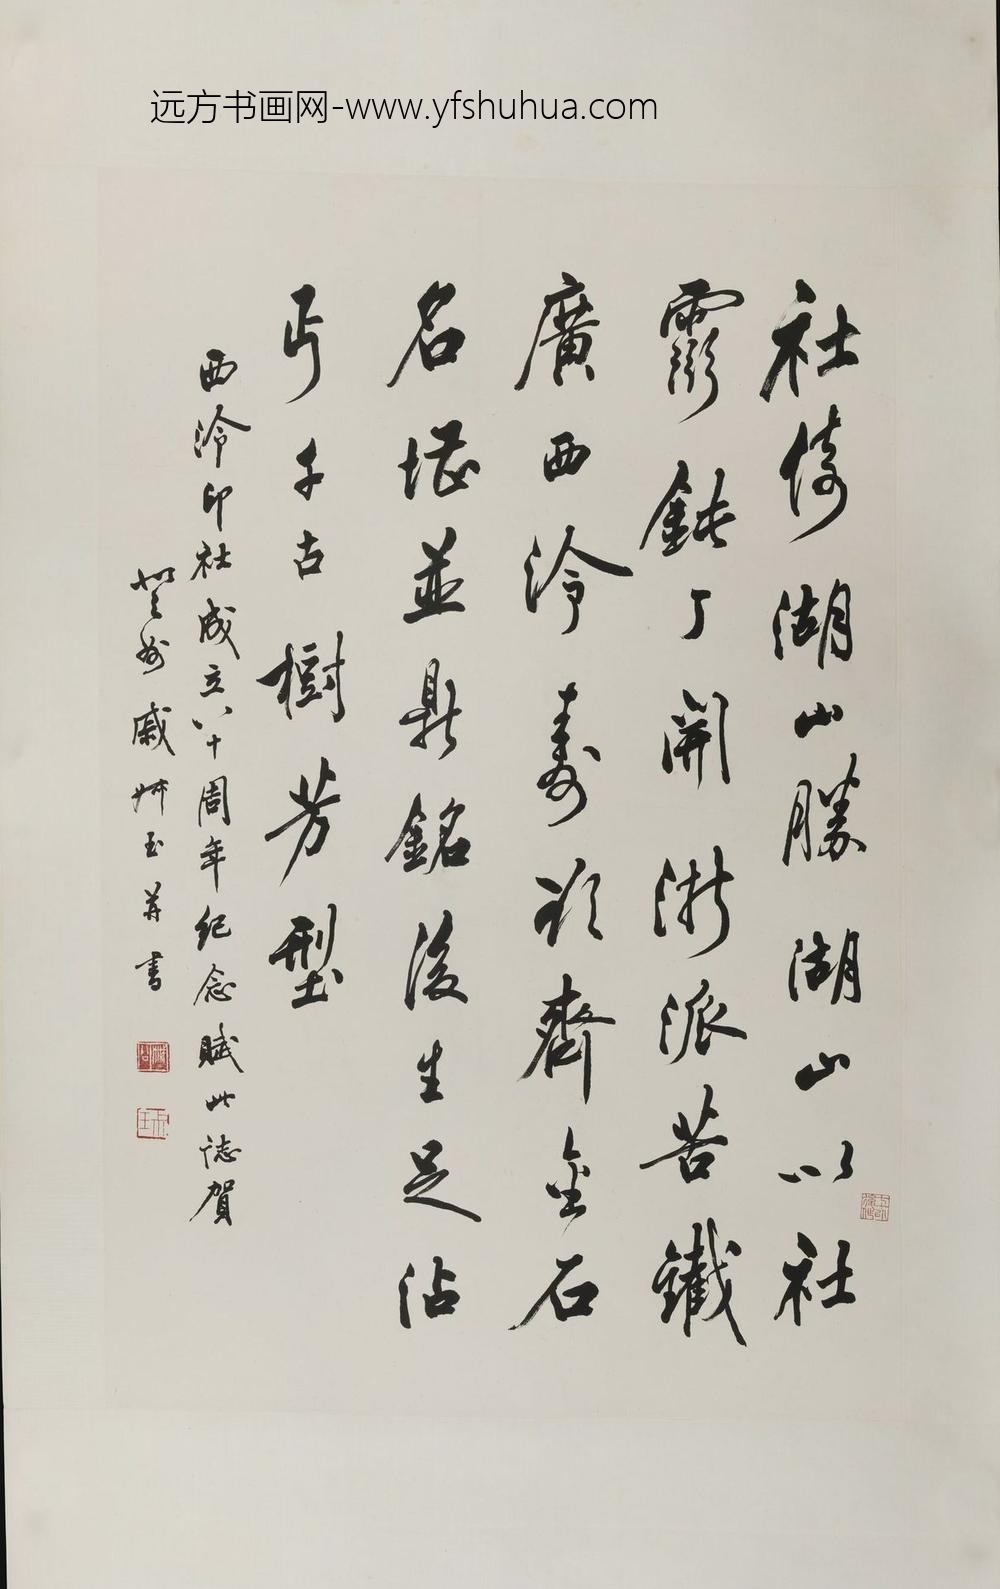 远方书画网-www.yfshuhua.com
社倚湖山勝湖山以社
靈鈍丁開浙派苦鐵
廣西泠壽欲齊金石
名堪並鼎銘後生足沾
丐千古樹芳型
西泠印社成立八十周年紀念賦此誌賀
登州戚叔玉并書